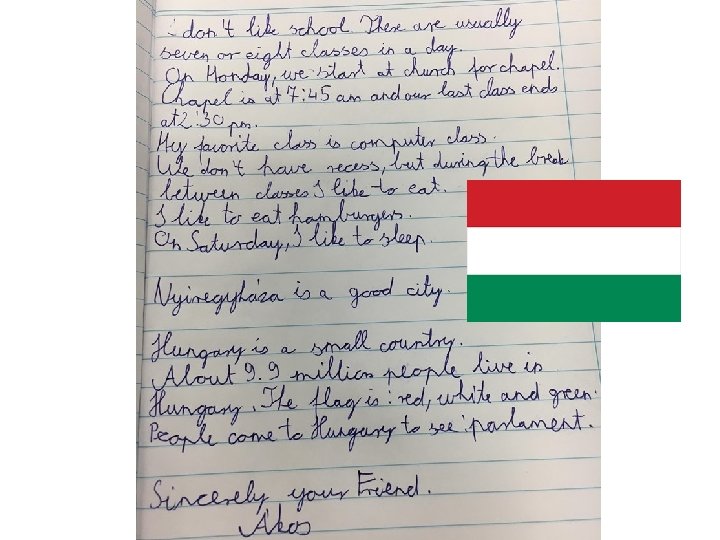 I don't like school. There are usually
seven or eight classes in a day.
On Monday, we start at church for chapel.
Chapel is at 7:45 am and our last class ends
at 2:30 pm.
My favorite class is computer class.
We don't have recess, but during the break
between classes I like to eat.
I like to eat hamburgers.
On Saturday, I like to sleep.
Nyíregyháza is a good city.
Hungary is a small country.
About 9.9 million people live in
Hungary. The flag is: red, white and green.
People come to Hungary to see: parlament.
Sincerely your Friend.
Akos